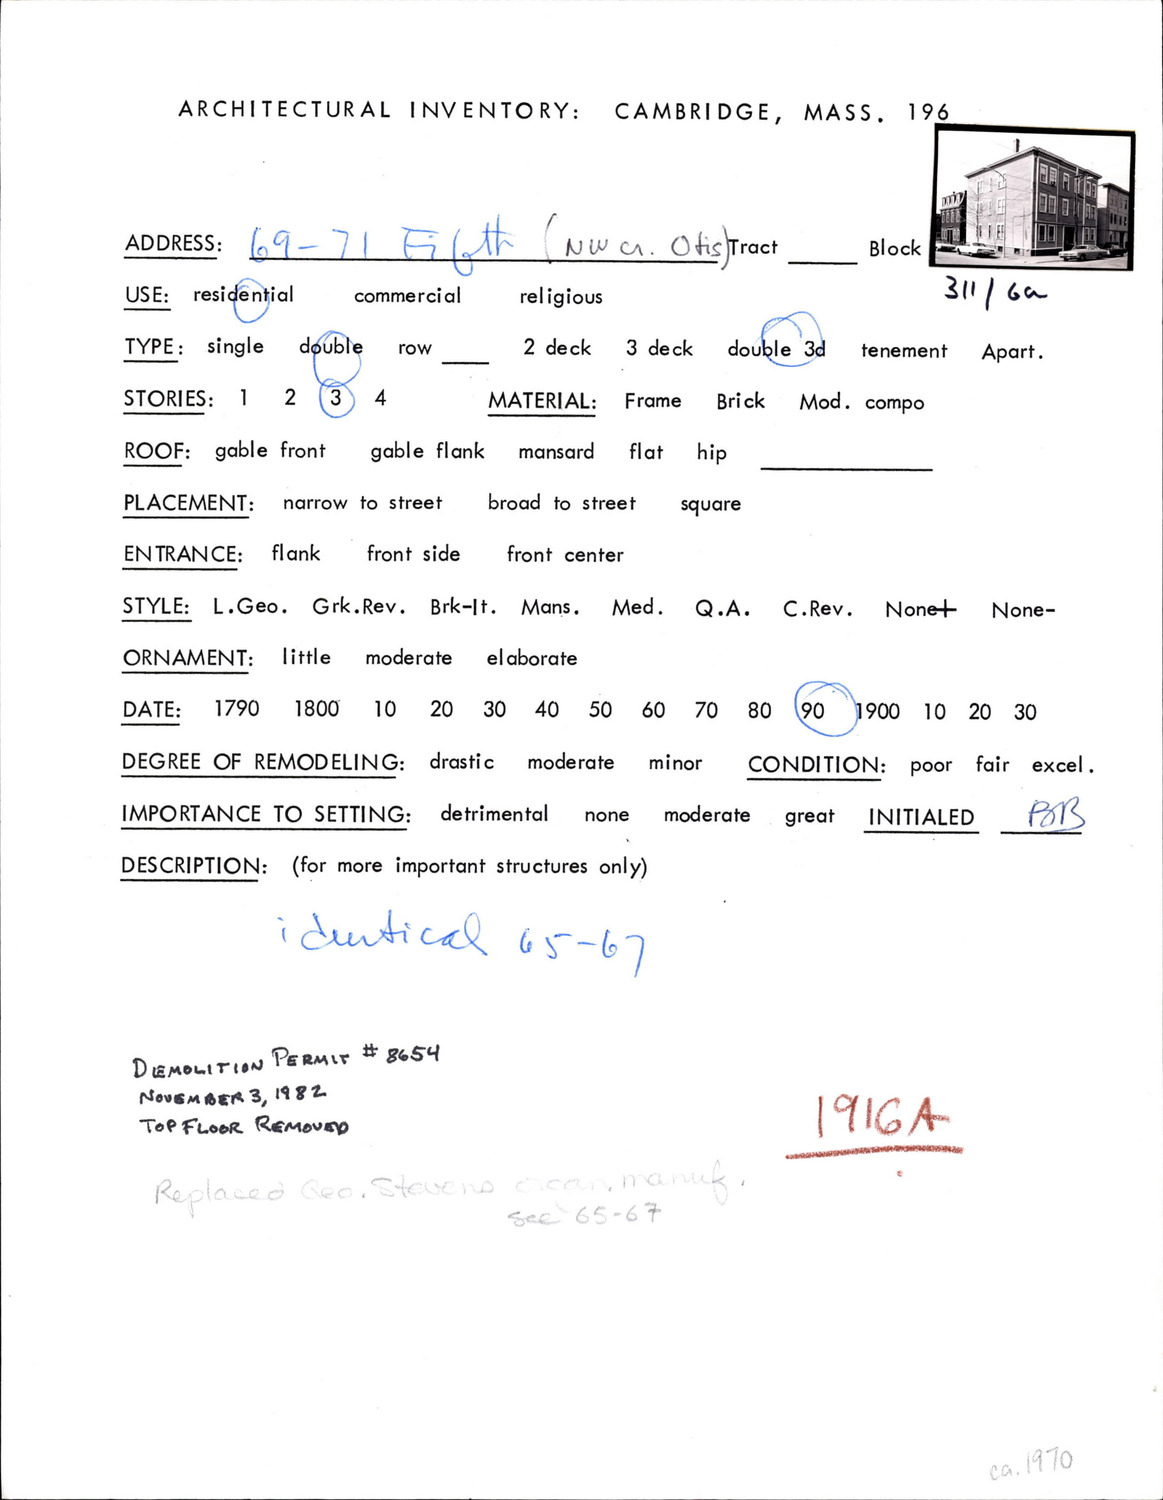 ARCHITECTURAL INVENTORY: CAMBRIDGE, MASS. 196
ADDRESS: 69-71 Fifth (NW cr. Otis) Tract Block
311/6a
USE: residential commercial religious
TYPE: single double row 2 deck 3 deck double 3d tenement Apart.
STORIES: 1 2 3 4 MATERIAL: Frame Brick Mod. compo
ROOF: gable front gable flank mansard flat hip
PLACEMENT: narrow to street broad to street square
ENTRANCE: flank front side front center
STYLE: L.Geo. Grk.Rev. Brk-It. Mans. Med. Q.A. C.Rev. None+ None-
ORNAMENT: little moderate elaborate
DATE: 1790 1800 10 20 30 40 50 60 70 80 90 1900 10 20 30
DEGREE OF REMODELING: drastic moderate minor CONDITION: poor fair excel.
IMPORTANCE TO SETTING: detrimental none moderate great INITIALED BRB
DESCRIPTION: (for more important structures only)
identical 65-67
DEMOLITION PERMIT # 8654
NOVEMBER 3, 1982
TOP FLOOR REMOVED
1916A
Replaced Geo. Stevens organ manuf.
see 65-67
ca. 1970